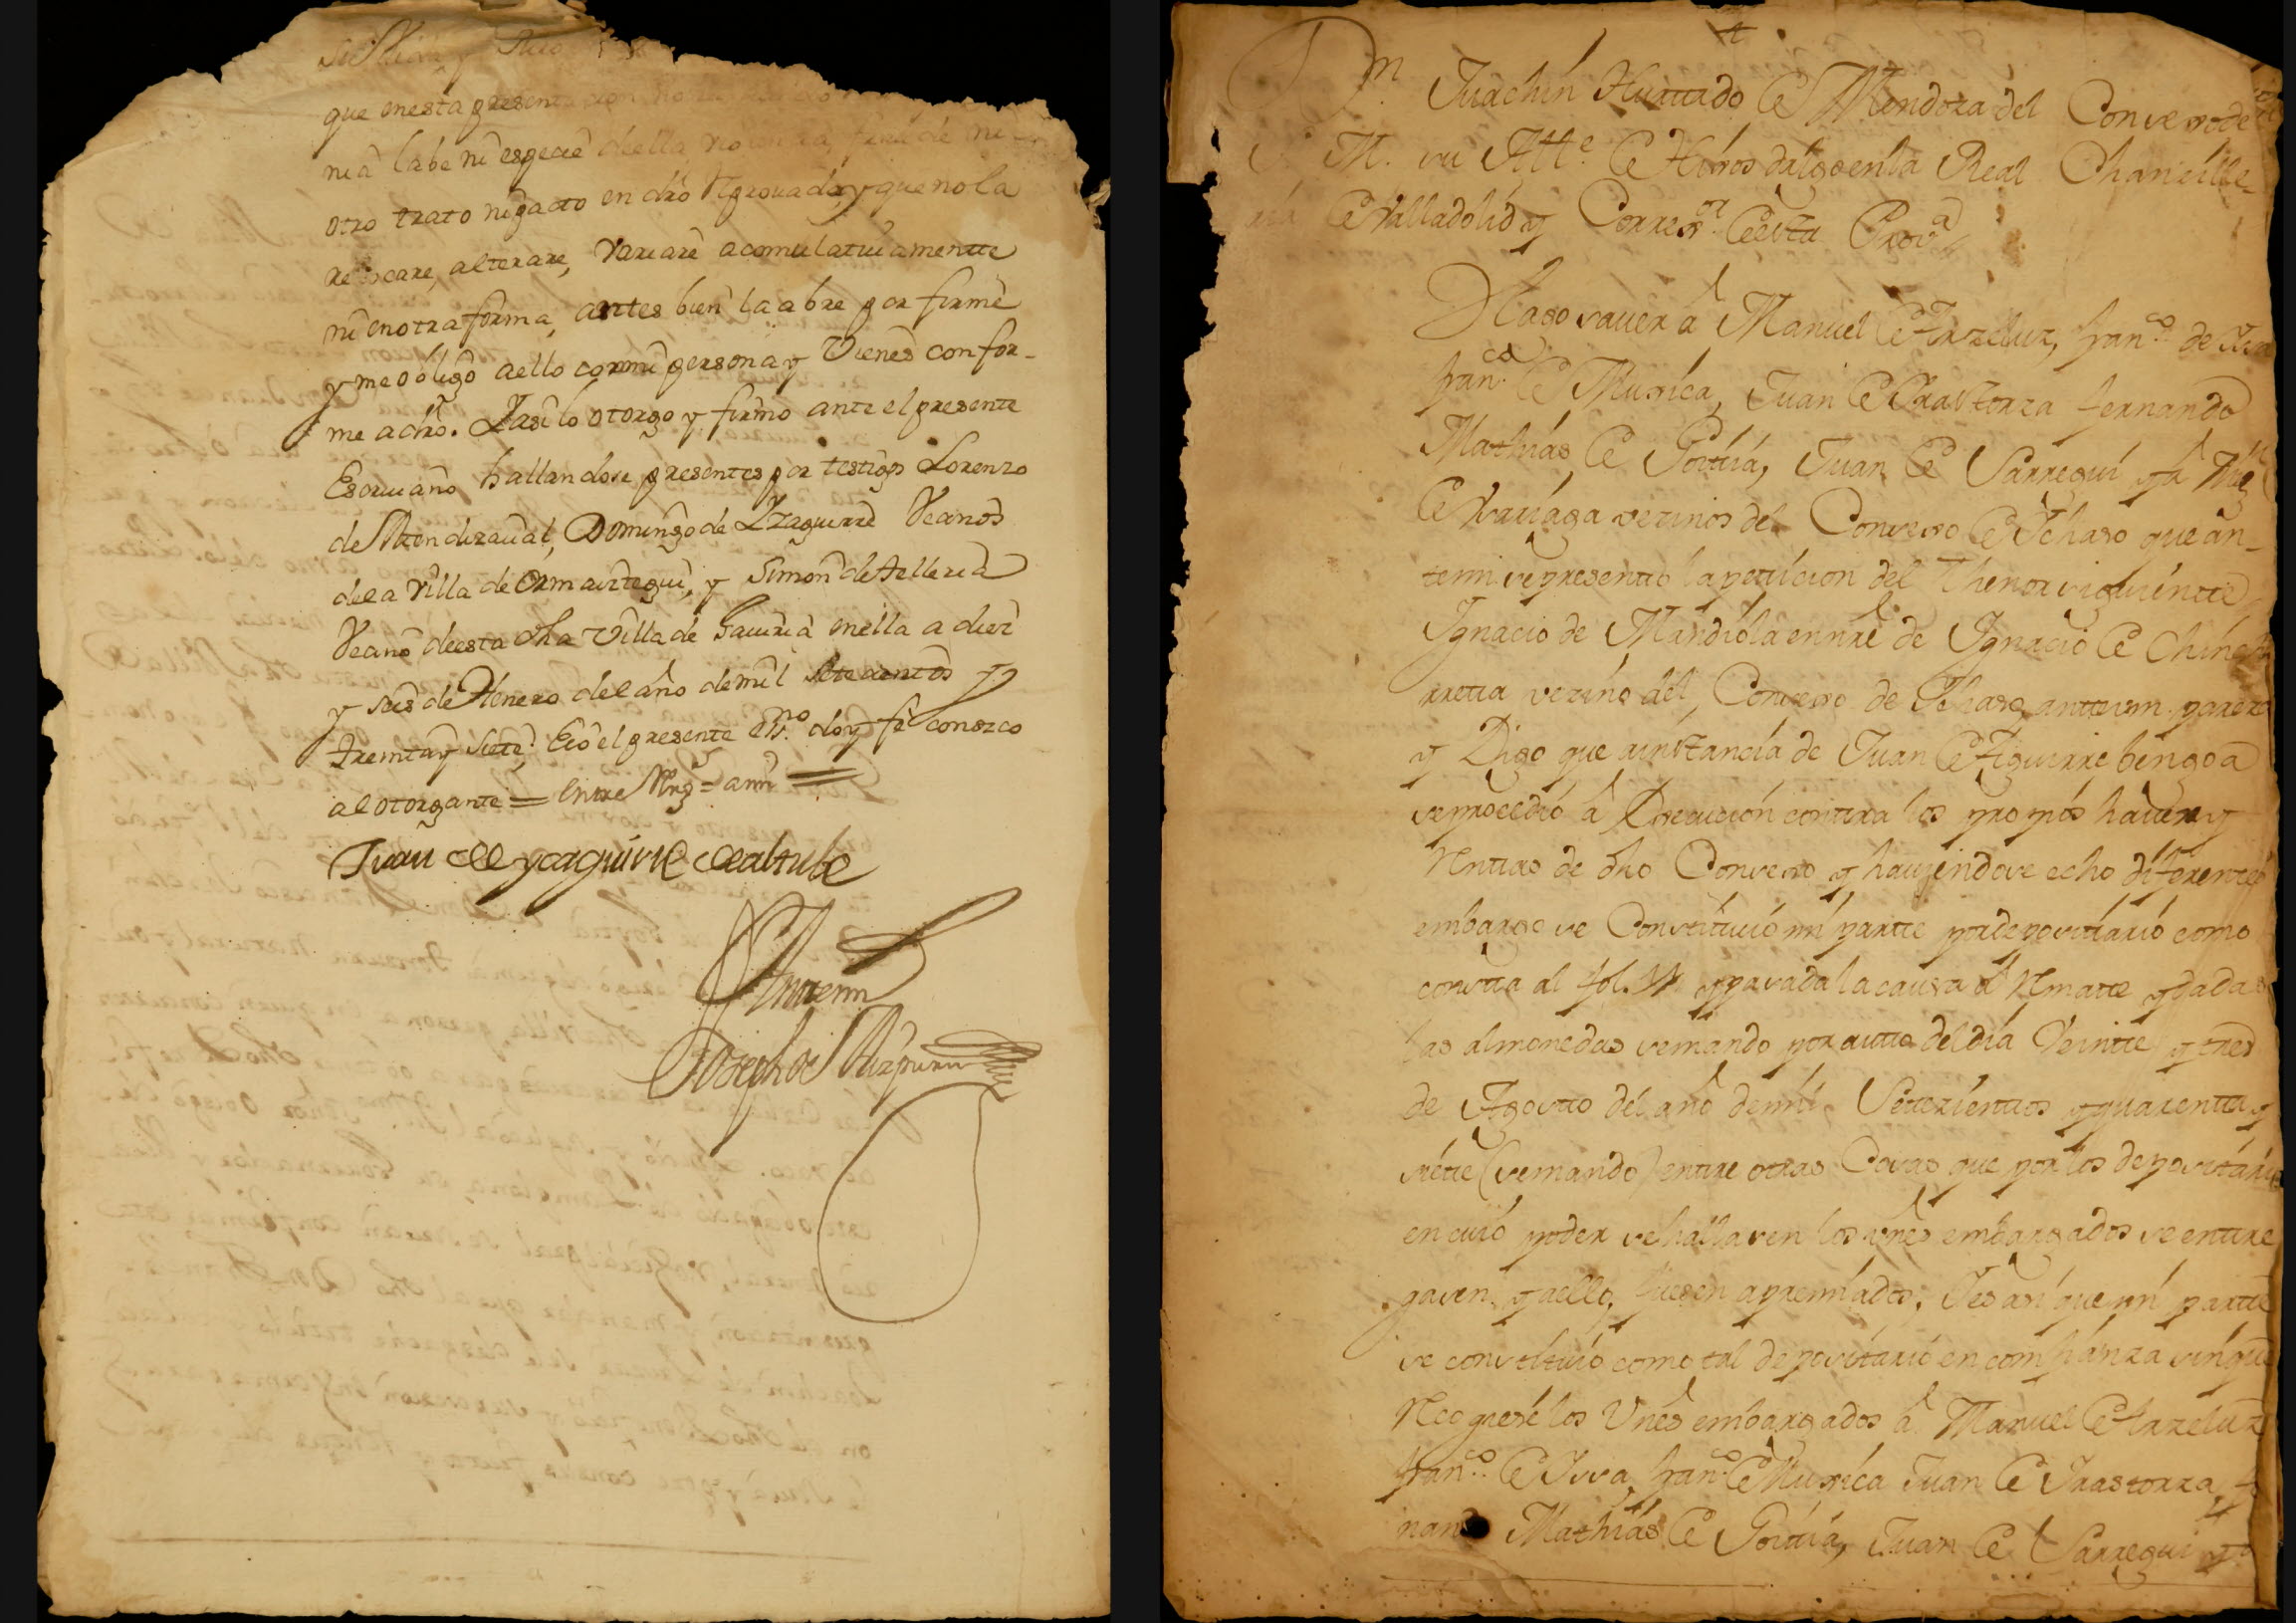 que en esta presentacion
nia labe ni especie de ella
otro trato ni pacto en dro reprouado, y que no la
reuocare, alterare, variare acomulatiuamentte
ni en otra forma, antes bien la abre por firme
y me obligo a ello con mi persona y Vienes confor-
me a dro. Yasi lo otorgo y firmo ante el presente
Escriuano hallandose presentes por testigos Lorenzo
de Mendizaual, Domingo de Yzaguirre Vecinos
de la villa de Ormaiztegui, y Simon de Telleria
Vecino de esta dha Villa de Gauiria en ella a diez
y seis de Henero del año de mil setecientos y
treinta y siete, E io el presente esno. doy fe conozco
al otorgante = Entre Rengs = a mi =
Juan de ycaguirre de altube
Ante mi
Joseph de Aizpuru
Dn. Juachin Hurttado de Mendoza del Consexo de
S. M. su Alle. de Hixos dalgo en la Real Chancille
ria de Valladolid y Correxor. de esta Prova.
Hago sauer a Manuel de Arzelus, Franco. de Ysa
Franco. de Muxica, Juan de Yrastorza Fernando
Mathias de Goittia, Juan de Sarregui y a Mil
de Arriaga vezinos del Consexo de Ychaso que an-
te mi se presentto la petticion del thenor siguientte
Ignacio de Mandiola en nre de Ignacio de Chinch
rretta vezino del Consexo de Ychaso antte vm parezco
y Digo que a insttancia de Juan de Aguirrebengoa
se procedio a Execucion conttra los propios hauer y
Renttas de dho Consexo y hauiendose echo diferentes
embargo se Constituio mi partte por depositario como
constta al fol. y pasada la causa a Remate y dadas
las almonedas se mando por autto del dia Veintte y tres
de Agostto del año de mil Settecienttos y quarentta y
siette (se mando) enttre otras Cosas que por los depositarios
en cuio poder se hallasen los vnes embargados se enttre
gasen y a ello fuesen apremiados, Yes asi que mi partte
se constituio como tal depositario en confianza sin que
Recogiese los Vnes embargados a Manuel de Arzelus
Franco. de Ysa, Franco. de Muxica Juan de Yrastorza, Fer
nando Mathias de Goittia, Juan de Sarregui y a